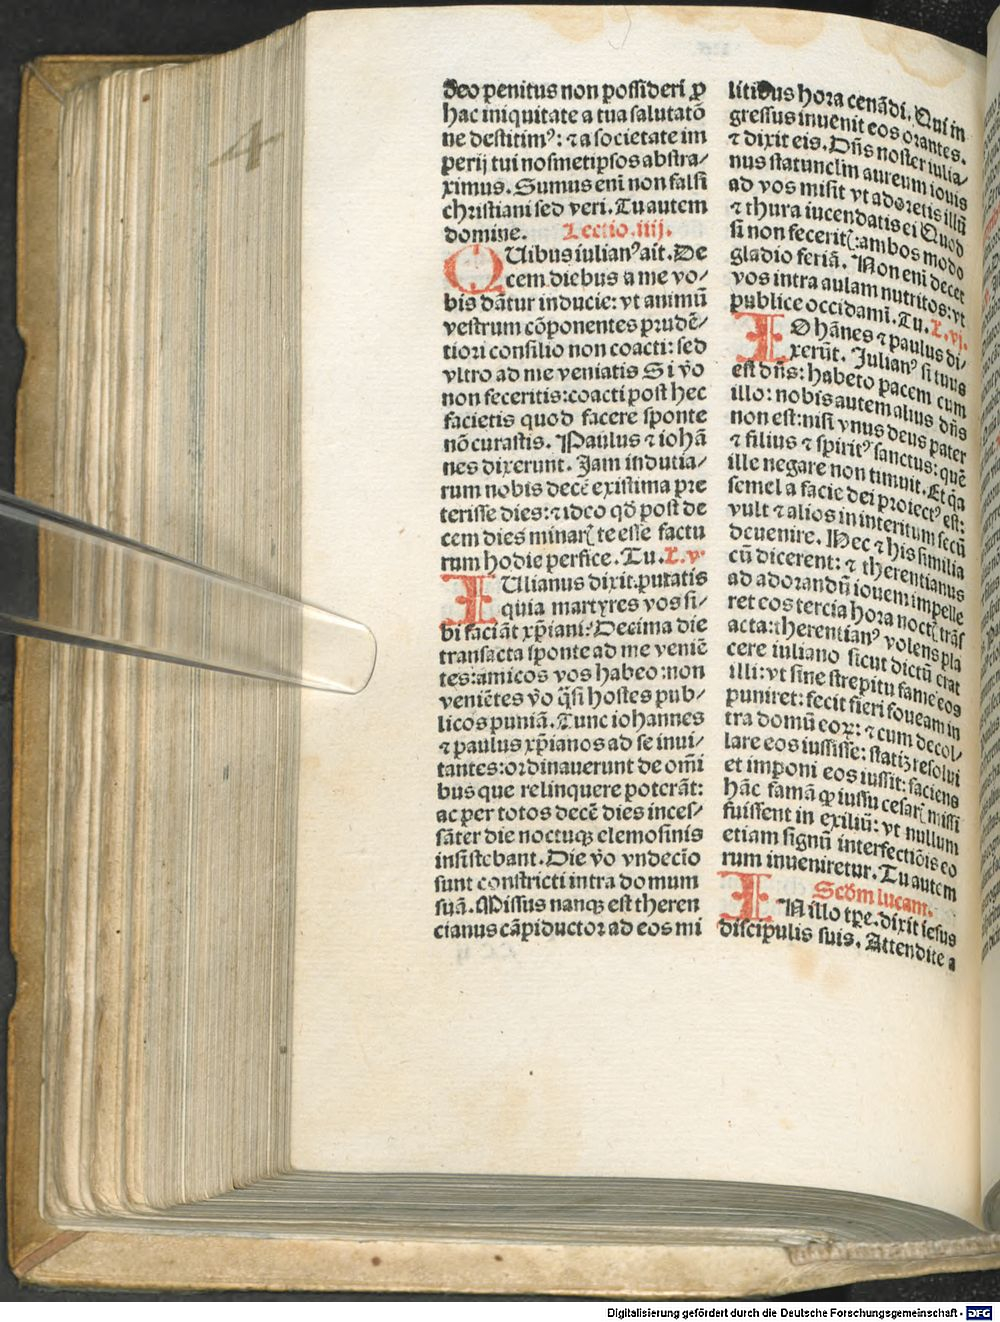 4
deo penitus non possideri ꝓ
hac iniquitate a tua salutatõ
ne destitimꝰ: ⁊ a societate im
perij tui nosmetipsos abstra/
ximus. Sumus eni̅ non falsi
christiani sed veri. Tu autem
domine. Lectio.iiij.
QUibus iulianꝰ ait. De
cem diebus a me vo/
bis dãtur inducie: vt animũ
vestrum cõponentes prudẽ/
tiori consilio non coacti: sed
vltro ad me veniatis Si v̊o
non feceritis: coacti post hec
facietis quod facere sponte
nõ curastis. Paulus ⁊ iohã
nes dixerunt. Jam indutia/
rum nobis decẽ existima pre
terisse dies: ⁊ ideo qd̕ post de
cem dies minarꝭ te esse factu
rum hodie perfice. Tu. L.v
IUlianus dixit. putatis
quia martyres vos si/
bi faciãt xp̃iani? Decima die
transacta sponte ad me veniẽ
tes: amicos vos habeo: non
veniẽtes v̊o q̃si hostes pub/
licos puniã. Tunc iohannes
⁊ paulus xp̃ianos ad se inui/
tantes: ordinauerunt de om̃i
bus que relinquere poterãt:
ac per totos decẽ dies inces/
sãter die noctuqꝫ elemosinis
insistebant. Die v̊o vndecĩo
sunt constricti intra domum
suã. Missus nanqꝫ est theren
cianus cãpiductor ad eos mi
litibus hora cenãdi. Qui in
gressus inuenit eos orantes.
⁊ dixit eis. Dñs noster iulia/
nus statunclm aureum iouis
ad vos misit vt adoretis illũ
⁊ thura iucendatis ei Quod
si non feceritꝭ: ambos modo
gladio feriã. Non eni̅ decet
vos intra aulam nutritos: vt
publice occidami̅. Tu. L.vj.
IOhãnes ⁊ paulus di/
xerũt. Julianꝰ si tuus
est dñs: habeto pacem cum
illo: nobis autem alius dñs
non est: nisi vnus deus pater
⁊ filius ⁊ spiritꝰ sanctus: quẽ
ille negare non timuit. Et q̃a
semel a facie dei proiectꝰ est:
vult ⁊ alios in interitum secũ
deuenire. Hec ⁊ his similia
cũ dicerent: ⁊ therentianus
ad adorandũ iouem impelle
ret eos tercia hora noctꝭ trãs
acta: therentianꝰ volens pla
cere iuliano sicut dictũ erat
illi: vt sine strepitu fame eos
puniret: fecit fieri foueam in
tra domũ eoꝝ: ⁊ cum decol/
lare eos iussisse: statiꝫ resolui
et imponi eos iussit: faciens
hãc famã ꝙ iussu cesarꝭ missi
fuissent in exiliũ: vt nullum
etiam signũ interfectiõis eo
rum inueniretur. Tu autem
Scd̕m lucam.
IN illo tp̃e. dixit iesus
discipulis suis. Attendite a
Digitalisierung gefördert durch die Deutsche Forschungsgemeinschaft - DFG